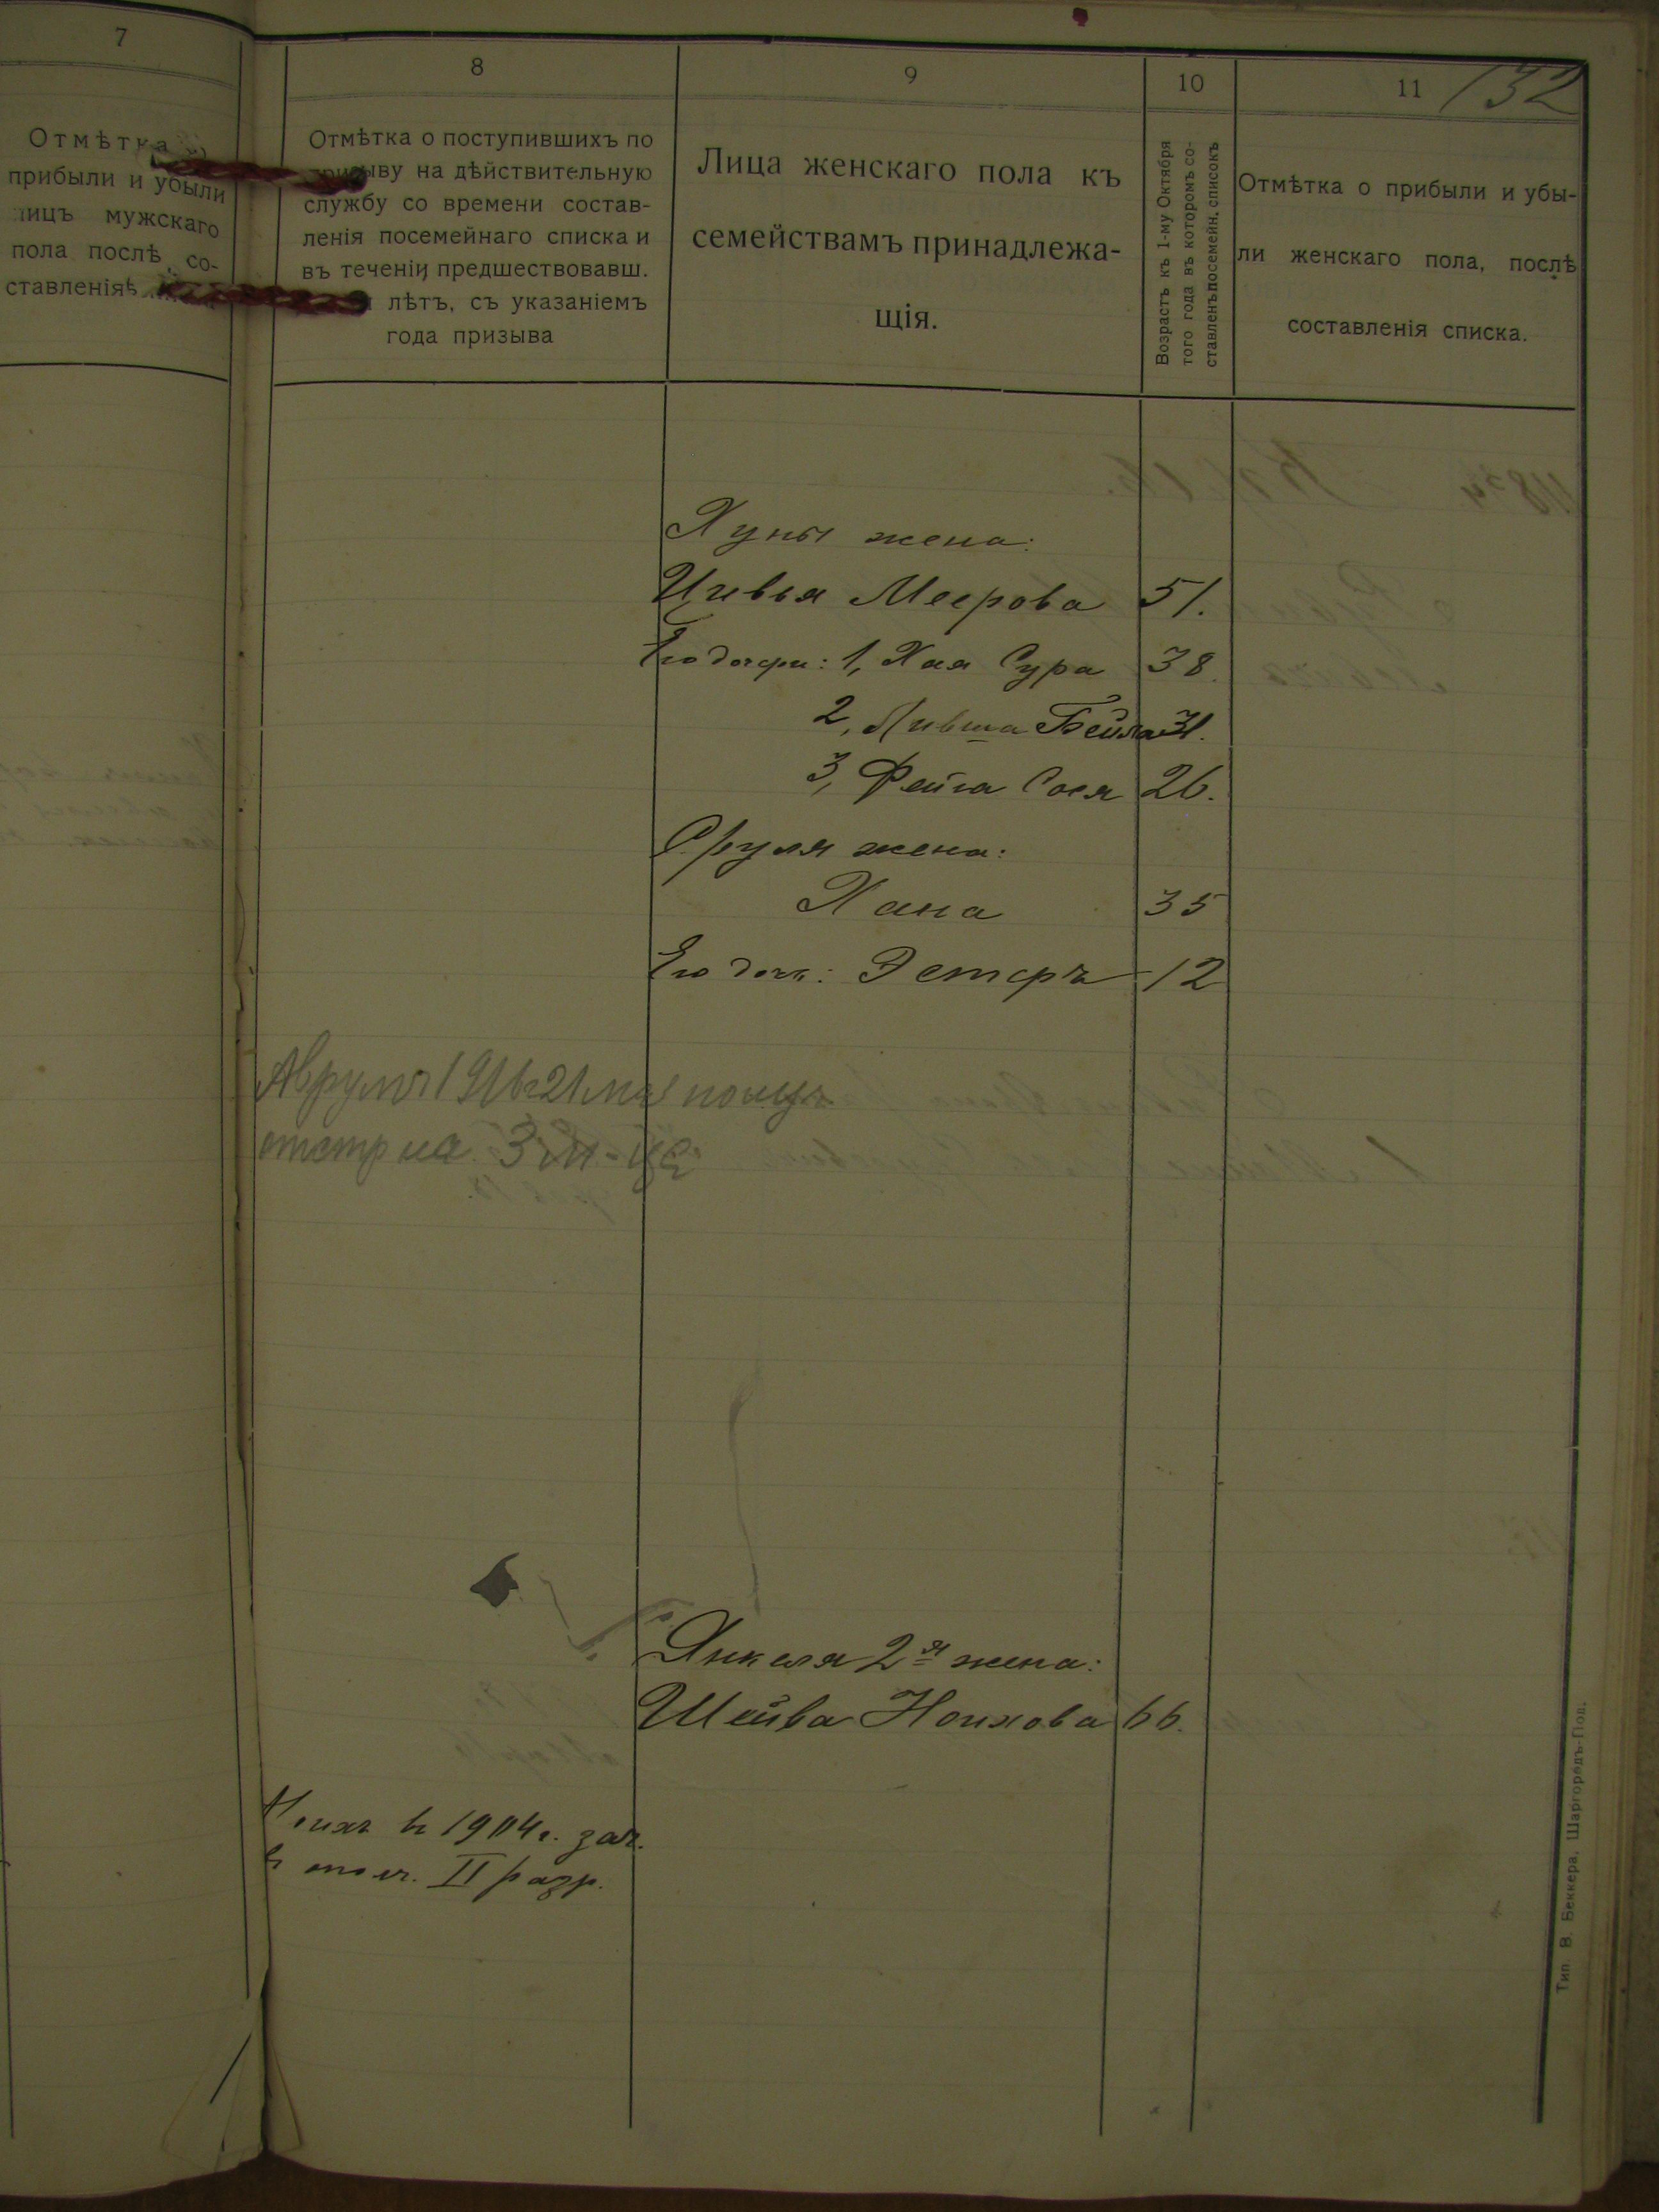 7
Отмѣтка
прибыли и убыли
лицъ мужскаго
пола послѣ со-
ставленія
8
Отмѣтка о поступившихъ по
призыву на дѣйствительную
службу со времени состав-
ленія посемейнаго списка и
въ теченіи предшествовавш.
лѣтъ, съ указаніемъ
года призыва
9
Лица женскаго пола къ
семействамъ принадлежа-
щія.
10
Возрастъ къ 1-му Октября
того года въ которомъ со-
ставленъ посемейн. списокъ
11
132
Отмѣтка о прибыли и убы-
ли женскаго пола, послѣ
составленія списка.
Хуны жена:
Цивья Меерова 51.
Его дочери: 1, Хая Сура 38.
2, Лившa Бейла 31.
3, Фейга Сося 26.
Сруля жена:
Хана 35
Его дочь: Эстеръ 12
Аврумъ 1916 21 получ
отстр на
Янкеля 2я жена:
Шейва Ноихова 66.
Ноихъ въ 1904 г. зач.
в ополч. II разр.
Тип. В. Беккера, Шаргородъ-Под.